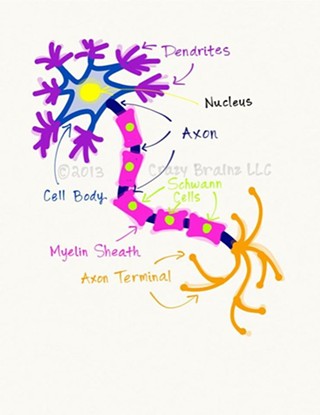 Dendrites
Nucleus
Axon
©2013 Crazy Brainz LLC
Schwann
Cells
Cell Body
Myelin Sheath
Axon Terminal